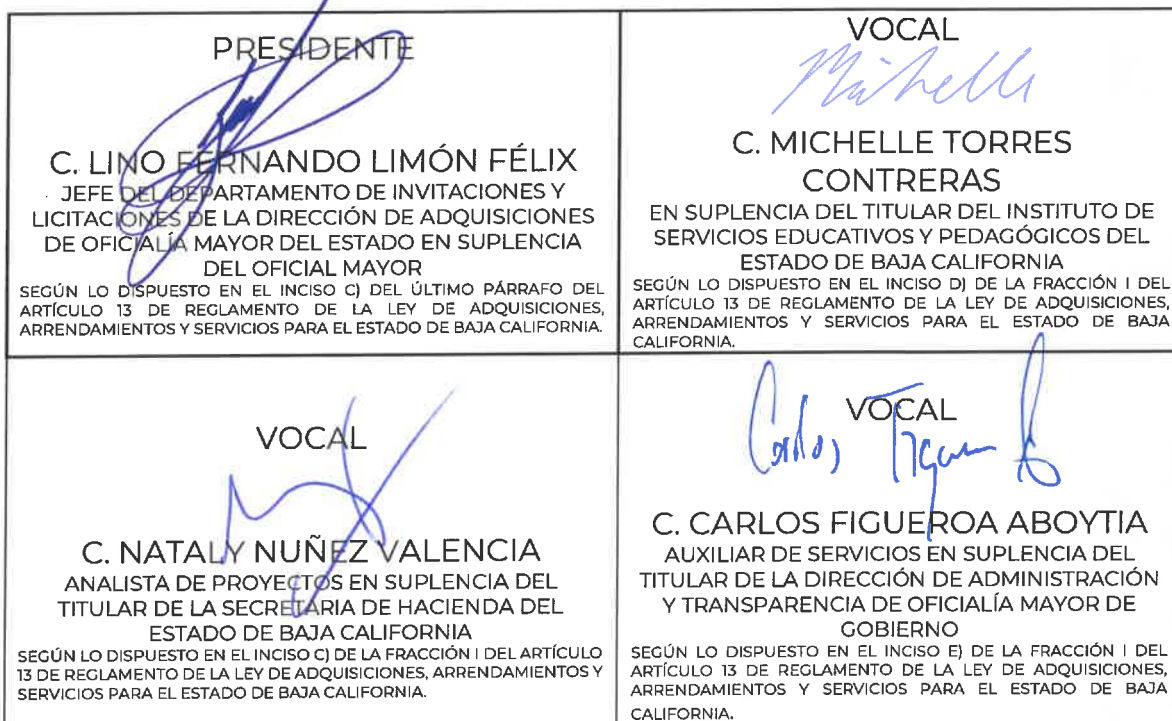 PRESIDENTE
C. LINO FERNANDO LIMÓN FÉLIX
JEFE DEL DEPARTAMENTO DE INVITACIONES Y
LICITACIONES DE LA DIRECCIÓN DE ADQUISICIONES
DE OFICIALÍA MAYOR DEL ESTADO EN SUPLENCIA
DEL OFICIAL MAYOR
SEGÚN LO DISPUESTO EN EL INCISO C) DEL ÚLTIMO PÁRRAFO DEL
ARTÍCULO 13 DE REGLAMENTO DE LA LEY DE ADQUISICIONES,
ARRENDAMIENTOS Y SERVICIOS PARA EL ESTADO DE BAJA CALIFORNIA.
VOCAL
Michelle
C. MICHELLE TORRES
CONTRERAS
EN SUPLENCIA DEL TITULAR DEL INSTITUTO DE
SERVICIOS EDUCATIVOS Y PEDAGÓGICOS DEL
ESTADO DE BAJA CALIFORNIA
SEGÚN LO DISPUESTO EN EL INCISO D) DE LA FRACCIÓN I DEL
ARTÍCULO 13 DE REGLAMENTO DE LA LEY DE ADQUISICIONES,
ARRENDAMIENTOS Y SERVICIOS PARA EL ESTADO DE BAJA
CALIFORNIA.
VOCAL
C. NATALY NUÑEZ VALENCIA
ANALISTA DE PROYECTOS EN SUPLENCIA DEL
TITULAR DE LA SECRETARIA DE HACIENDA DEL
ESTADO DE BAJA CALIFORNIA
SEGÚN LO DISPUESTO EN EL INCISO C) DE LA FRACCIÓN I DEL ARTÍCULO
13 DE REGLAMENTO DE LA LEY DE ADQUISICIONES, ARRENDAMIENTOS Y
SERVICIOS PARA EL ESTADO DE BAJA CALIFORNIA.
VOCAL
Carlos
C. CARLOS FIGUEROA ABOYTIA
AUXILIAR DE SERVICIOS EN SUPLENCIA DEL
TITULAR DE LA DIRECCIÓN DE ADMINISTRACIÓN
Y TRANSPARENCIA DE OFICIALÍA MAYOR DE
GOBIERNO
SEGÚN LO DISPUESTO EN EL INCISO E) DE LA FRACCIÓN I DEL
ARTÍCULO 13 DE REGLAMENTO DE LA LEY DE ADQUISICIONES,
ARRENDAMIENTOS Y SERVICIOS PARA EL ESTADO DE BAJA
CALIFORNIA.